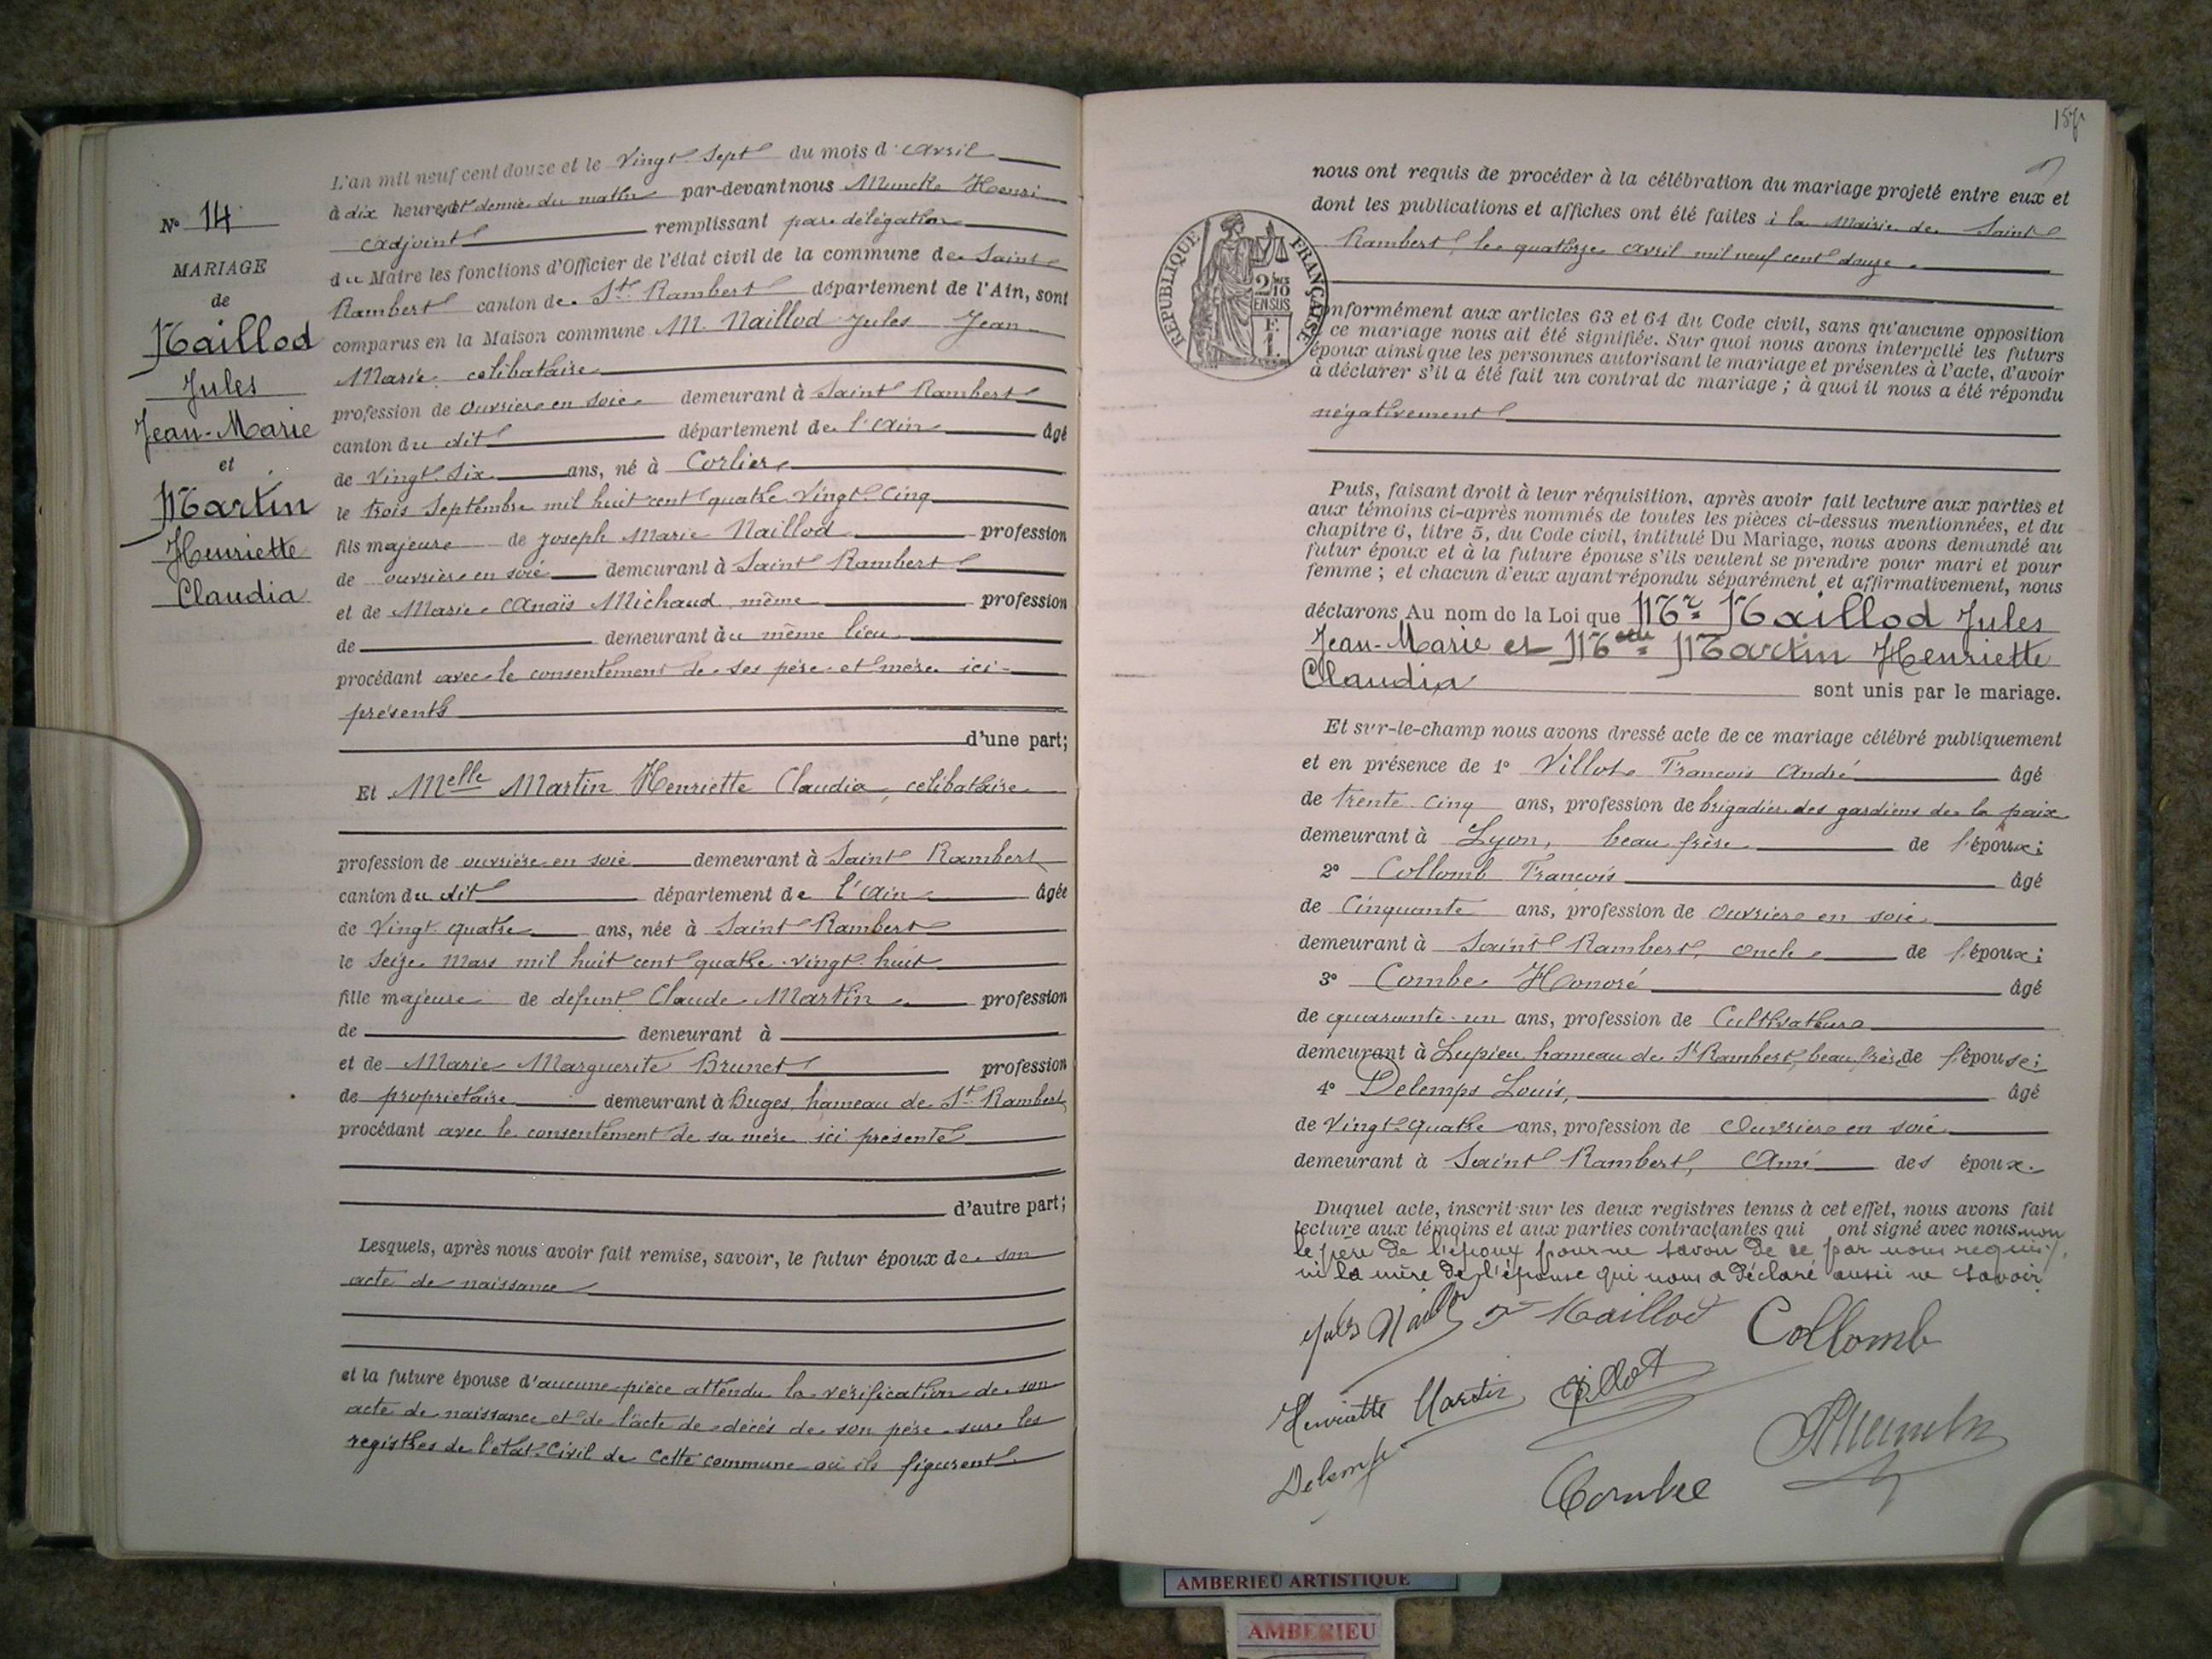 N° 14
MARIAGE
de
Naillod
Jules
Jean-Marie
et
Martin
Henriette
Claudia
L'an mil neuf cent douze et le vingt sept du mois d'avril
à dix heures et demie du matin par-devant nous Muncke Henri
adjoint remplissant par délégation
du Maire les fonctions d'Officier de l'état civil de la commune de Saint
Rambert canton de St Rambert département de l'Ain, sont
comparus en la Maison commune M. Naillod Jules Jean
Marie célibataire
profession de ouvrier en soie demeurant à Saint Rambert
canton du dit département de l'Ain âgé
de vingt six ans, né à Corlier
le trois Septembre mil huit cent quatre vingt cinq
fils majeur de Joseph Marie Naillod profession
de ouvrier en soie demeurant à Saint Rambert
et de Marie Anaïs Michaud, même profession
de demeurant au même lieu
procédant avec le consentement de ses père et mère ici-
présents
d'une part;
Et Melle Martin Henriette Claudia, célibataire
profession de ouvrière en soie demeurant à Saint Rambert
canton du dit département de l'Ain âgée
de vingt quatre ans, née à Saint Rambert
le seize Mars mil huit cent quatre-vingt-huit
fille majeure de défunt Claude Martin profession
de demeurant à
et de Marie Marguerite Brunet profession
de propriétaire demeurant à Buges, hameau de St Rambert
procédant avec le consentement de sa mère ici présente
d'autre part;
Lesquels, après nous avoir fait remise, savoir, le futur époux de son
acte de naissance
et la future épouse d'aucune pièce attendu la vérification de son
acte de naissance et de l'acte de décès de son père sur les
registres de l'état-Civil de cette commune où ils figurent
nous ont requis de procéder à la célébration du mariage projeté entre eux et
dont les publications et affiches ont été faites à la Mairie de Saint
Rambert, le quatorze avril mil neuf cent douze
RÉPUBLIQUE FRANÇAISE
2/10 EN SUS
F. 1.
conformément aux articles 63 et 64 du Code civil, sans qu'aucune opposition
à ce mariage nous ait été signifiée. Sur quoi nous avons interpellé les futurs
époux ainsi que les personnes autorisant le mariage et présentes à l'acte, d'avoir
à déclarer s'il a été fait un contrat de mariage; à quoi il nous a été répondu
négativement
Puis, faisant droit à leur réquisition, après avoir fait lecture aux parties et
aux témoins ci-après nommés de toutes les pièces ci-dessus mentionnées, et du
chapitre 6, titre 5, du Code civil, intitulé Du Mariage, nous avons demandé au
futur époux et à la future épouse s'ils veulent se prendre pour mari et pour
femme; et chacun d'eux ayant répondu séparément et affirmativement, nous
déclarons Au nom de la Loi que Mr Naillod Jules
Jean-Marie et Melle Martin Henriette
Claudia sont unis par le mariage.
Et sur-le-champ nous avons dressé acte de ce mariage célébré publiquement
et en présence de 1° Villot François André âgé
de trente-cinq ans, profession de brigadier des gardiens de la paix
demeurant à Lyon, beau-frère de l'époux;
2° Collomb François âgé
de cinquante ans, profession de ouvrier en soie
demeurant à Saint Rambert, oncle de l'époux;
3° Combe Honoré âgé
de quarante-un ans, profession de Cultivateur
demeurant à Lupieu hameau de St Rambert, beau frère de l'épouse;
4° Delemps Louis, âgé
de vingt-quatre ans, profession de ouvrier en soie
demeurant à Saint Rambert, Ami des époux.
Duquel acte, inscrit sur les deux registres tenus à cet effet, nous avons fait
lecture aux témoins et aux parties contractantes qui ont signé avec nous non
le père de l'époux pour ne savoir de ce par nous requis,
ni la mère de l'épouse qui nous a déclaré aussi ne savoir
Jules Naillod Naillod Collomb
Henriette Martin Villot
Delemps Combe
AMBERIEU ARTISTIQUE
AMBERIEU